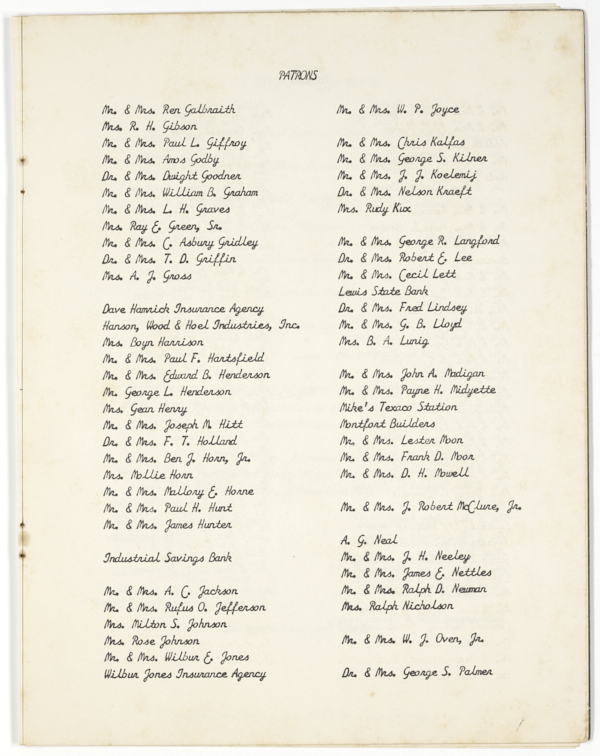 PATRONS
Mr. & Mrs. Ren Galbraith
Mrs. R. H. Gibson
Mr. & Mrs. Paul L. Giffroy
Mr. & Mrs. Amos Godby
Dr. & Mrs. Dwight Goodner
Mr. & Mrs. William B. Graham
Mr. & Mrs. L. H. Graves
Mrs. Ray E. Green, Sr.
Mr. & Mrs. C. Asbury Gridley
Dr. & Mrs. T. D. Griffin
Mrs. A. J. Gross
Dave Hamrick Insurance Agency
Hanson, Wood & Hoel Industries, Inc.
Mrs. Boyn Harrison
Mr. & Mrs. Paul F. Hartsfield
Mr. & Mrs. Edward B. Henderson
Mr. George L. Henderson
Mrs. Gean Henry
Mr. & Mrs. Joseph M. Hitt
Dr. & Mrs. F. T. Holland
Mr. & Mrs. Ben J. Horn, Jr.
Mrs. Mollie Horn
Mr. & Mrs. Mallory E. Horne
Mr. & Mrs. Paul H. Hunt
Mr. & Mrs. James Hunter
Industrial Savings Bank
Mr. & Mrs. A. C. Jackson
Mr. & Mrs. Rufus O. Jefferson
Mrs. Milton S. Johnson
Mrs. Rose Johnson
Mr. & Mrs. Wilbur E. Jones
Wilbur Jones Insurance Agency
Mr. & Mrs. W. P. Joyce
Mr. & Mrs. Chris Kalfas
Mr. & Mrs. George S. Kilner
Mr. & Mrs. J. J. Koelemij
Dr. & Mrs. Nelson Kraeft
Mrs. Rudy Kux
Mr. & Mrs. George R. Langford
Dr. & Mrs. Robert E. Lee
Mr. & Mrs. Cecil Lett
Lewis State Bank
Dr. & Mrs. Fred Lindsey
Mr. & Mrs. G. B. Lloyd
Mrs. B. A. Lunig
Mr. & Mrs. John A. Madigan
Mr. & Mrs. Payne H. Midyette
Mike's Texaco Station
Montfort Builders
Mr. & Mrs. Lester Moon
Mr. & Mrs. Frank D. Moor
Mr. & Mrs. D. H. Mowell
Mr. & Mrs. J. Robert McClure, Jr.
A. G. Neal
Mr. & Mrs. J. H. Neeley
Mr. & Mrs. James E. Nettles
Mr. & Mrs. Ralph D. Newman
Mrs. Ralph Nicholson
Mr. & Mrs. W. J. Oven, Jr.
Dr. & Mrs. George S. Palmer